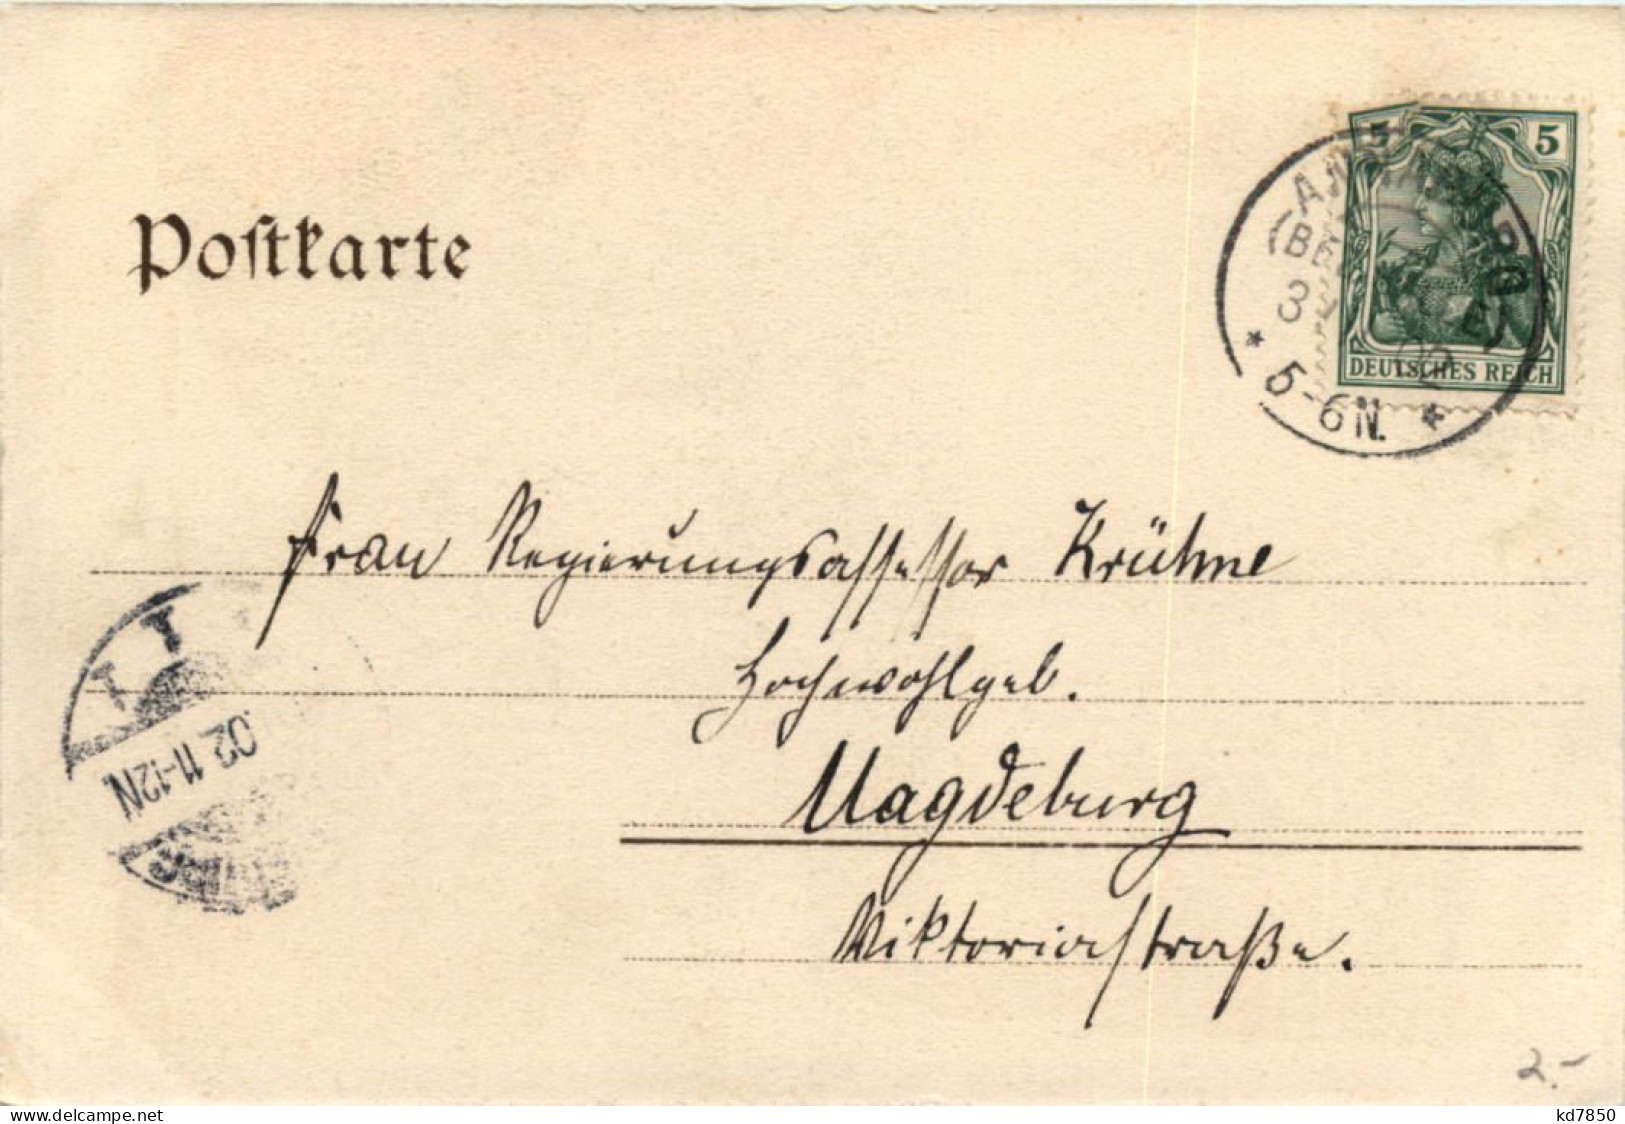 Postkarte
5 5
DEUTSCHES REICH
5-6N.
Frau Regierungsassessor Krühne
Hochwohlgeb.
Magdeburg
Viktoriastraße.
02 11-12N.
2.-
www.delcampe.net
kd7850